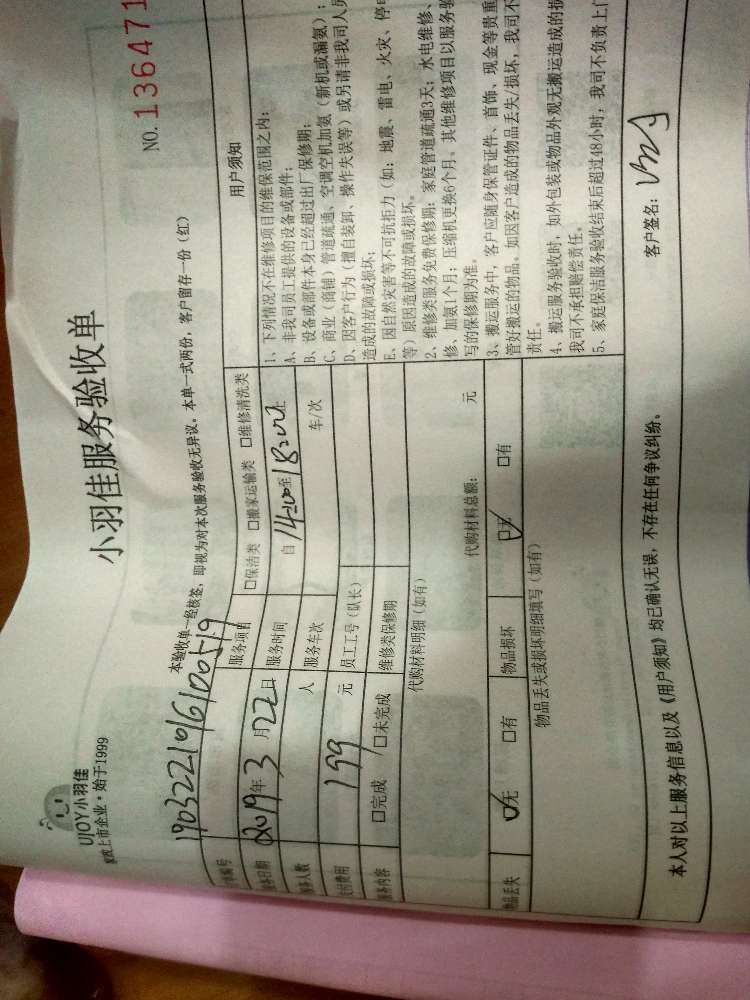 UJOY小羽佳
家政上市企业·始于1999
小羽佳服务验收单
NO. 136471
本验收单一经核签，即视为对本次服务验收无异议。本单一式两份，客户留存一份（红）
190322101610
服务项目 □保洁类 □搬家运输类 □维修清洗类
服务日期 2019年3月22日 服务时间 自14:00至18:00止
服务人数 人 服务车次 车/次
支付费用 199元 员工工号（队长）
服务内容 □完成 □未完成 维修类保修期
代购材料明细（如有）
代购材料总额： 元
物品丢失 ☑无 □有 物品损坏 ☑无 □有
物品丢失或损坏明细填写（如有）
用户须知
1、下列情况不在维修项目的维保范围之内：
A、非我司员工提供的设备或部件；
B、设备或部件本身已经超过出厂保修期；
C、商业（商铺）管道疏通、空调空机加氨（新机或漏氨）；
D、因客户行为（擅自装卸、操作失误等）或另请非我司人员
造成的故障或损坏；
E、因自然灾害等不可抗拒力（如：地震、雷电、火灾、停电
等）原因造成的故障或损坏。
2、维修类服务免费保修期：家庭管道疏通3天；水电维修、
修、加氨1个月；压缩机更换6个月。其他维修项目以服务验
写的保修期为准。
3、搬运服务中，客户应随身保管证件、首饰、现金等贵重
管好搬运的物品。如因客户造成的物品丢失/损坏，我司不
责任。
4、搬运服务验收时，如外包装或物品外观无搬运造成的损
我司不承担赔偿责任。
5、家庭保洁服务验收结束后超过48小时，我司不负责上门
本人对以上服务信息以及《用户须知》均已确认无误，不存在任何争议纠纷。
客户签名：